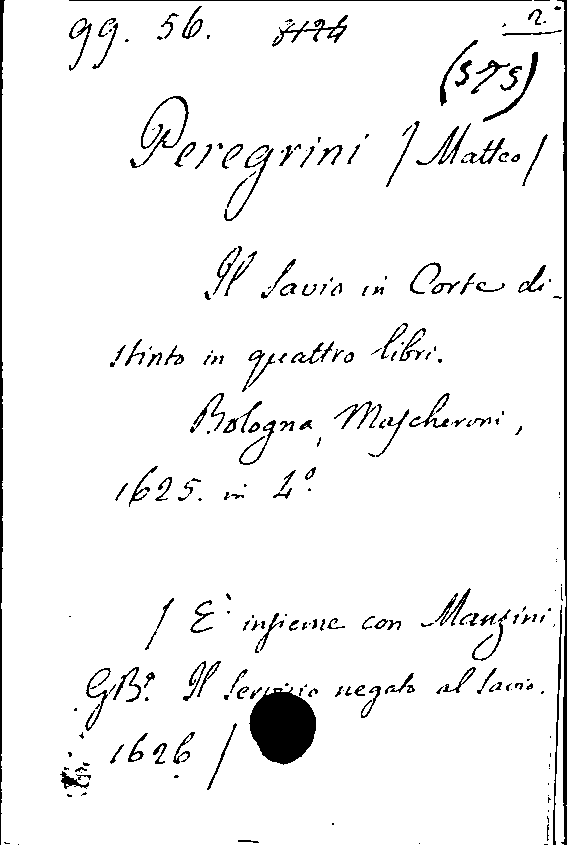 gg. 56. 3124 2
(575)
Peregrini / Matteo /
Il Savio in Corte di-
stinto in quattro libri.
Bologna, Mascheroni,
1625. in 4º.
/ È insieme con Manzini.
GBª. Il servizio negato al Savio.
1626 /